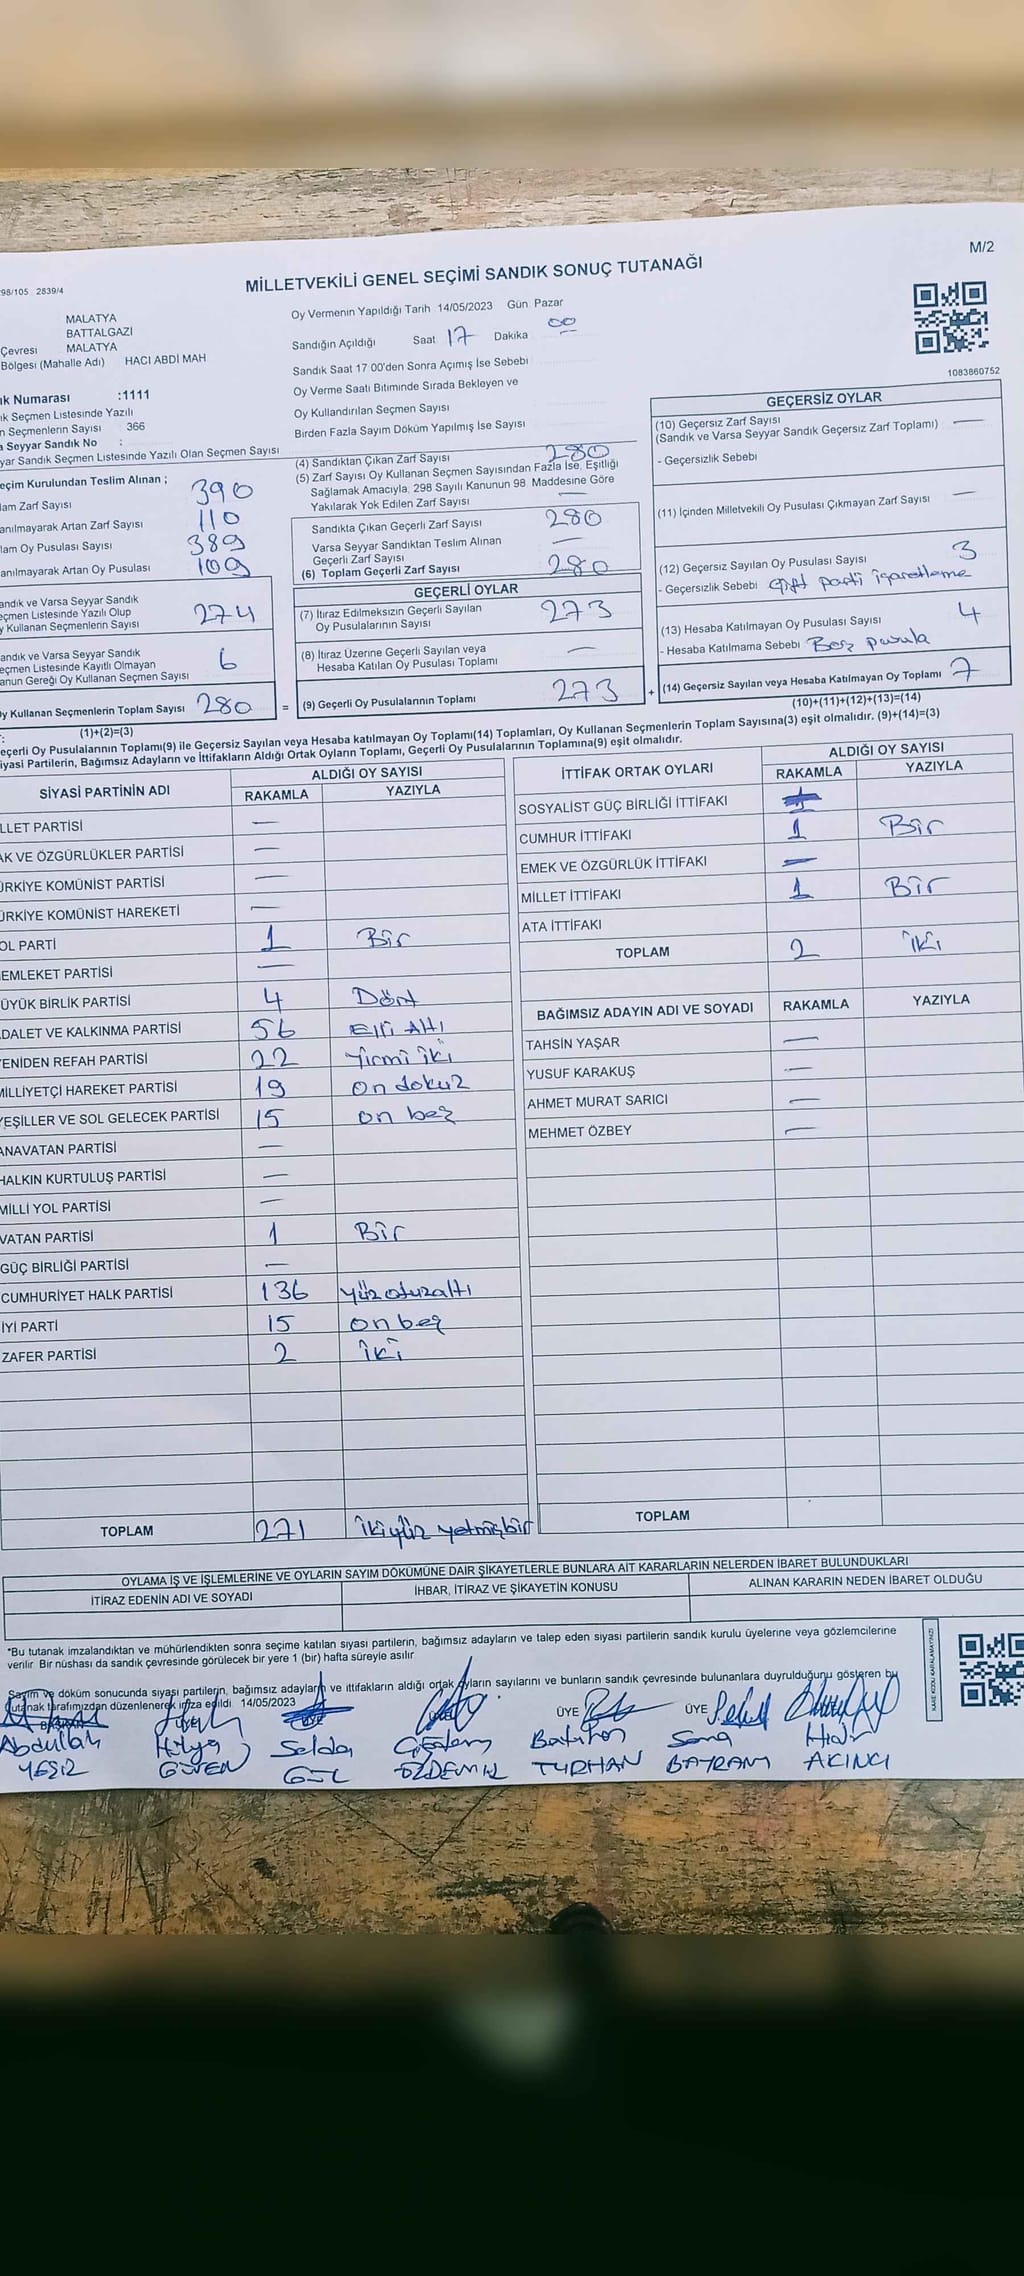 M/2
98/105 2839/4
MİLLETVEKİLİ GENEL SEÇİMİ SANDIK SONUÇ TUTANAĞI
MALATYA
BATTALGAZİ
Çevresi MALATYA
Bölgesi (Mahalle Adı) HACI ABDİ MAH
Oy Vermenin Yapıldığı Tarih 14/05/2023 Gün Pazar
Sandığın Açıldığı Saat 17 Dakika 00
Sandık Saat 17 00'den Sonra Açımış İse Sebebi
Oy Verme Saati Bitiminde Sırada Bekleyen ve
Oy Kullandırılan Seçmen Sayısı
Birden Fazla Sayım Döküm Yapılmış İse Sayısı
1083860752
ık Numarası :1111
ık Seçmen Listesinde Yazılı
n Seçmenlerin Sayısı 366
a Seyyar Sandık No :
yar Sandık Seçmen Listesinde Yazılı Olan Seçmen Sayısı
eçim Kurulundan Teslim Alınan ;
lam Zarf Sayısı 390
anılmayarak Artan Zarf Sayısı 110
lam Oy Pusulası Sayısı 389
anılmayarak Artan Oy Pusulası 109
andık ve Varsa Seyyar Sandık
eçmen Listesinde Yazılı Olup
y Kullanan Seçmenlerin Sayısı 274
andık ve Varsa Seyyar Sandık
eçmen Listesinde Kayıtlı Olmayan
anun Gereği Oy Kullanan Seçmen Sayısı 6
y Kullanan Seçmenlerin Toplam Sayısı 280
(1)+(2)=(3)
(4) Sandıktan Çıkan Zarf Sayısı 280
(5) Zarf Sayısı Oy Kullanan Seçmen Sayısından Fazla İse, Eşitliği
Sağlamak Amacıyla, 298 Sayılı Kanunun 98 Maddesine Göre
Yakılarak Yok Edilen Zarf Sayısı —
Sandıkta Çıkan Geçerli Zarf Sayısı 280
Varsa Seyyar Sandıktan Teslim Alınan
Geçerli Zarf Sayısı —
(6) Toplam Geçerli Zarf Sayısı 280
GEÇERLİ OYLAR
(7) İtiraz Edilmeksizin Geçerli Sayılan
Oy Pusulalarının Sayısı 273
(8) İtiraz Üzerine Geçerli Sayılan veya
Hesaba Katılan Oy Pusulası Toplamı —
= (9) Geçerli Oy Pusulalarının Toplamı 273
GEÇERSİZ OYLAR
(10) Geçersiz Zarf Sayısı
(Sandık ve Varsa Seyyar Sandık Geçersiz Zarf Toplamı) —
- Geçersizlik Sebebi
(11) İçinden Milletvekili Oy Pusulası Çıkmayan Zarf Sayısı —
(12) Geçersiz Sayılan Oy Pusulası Sayısı 3
- Geçersizlik Sebebi Çift parti işaretleme
(13) Hesaba Katılmayan Oy Pusulası Sayısı 4
- Hesaba Katılmama Sebebi Boş pusula
+ (14) Geçersiz Sayılan veya Hesaba Katılmayan Oy Toplamı 7
(10)+(11)+(12)+(13)=(14)
eçerli Oy Pusulalarının Toplamı(9) ile Geçersiz Sayılan veya Hesaba katılmayan Oy Toplamı(14) Toplamları, Oy Kullanan Seçmenlerin Toplam Sayısına(3) eşit olmalıdır. (9)+(14)=(3)
iyasi Partilerin, Bağımsız Adayların ve İttifakların Aldığı Ortak Oyların Toplamı, Geçerli Oy Pusulalarının Toplamına(9) eşit olmalıdır.
SİYASİ PARTİNİN ADI ALDIĞI OY SAYISI
RAKAMLA YAZIYLA
LLET PARTİSİ —
AK VE ÖZGÜRLÜKLER PARTİSİ —
ÜRKİYE KOMÜNİST PARTİSİ —
ÜRKİYE KOMÜNİST HAREKETİ —
OL PARTİ 1 Bir
EMLEKET PARTİSİ —
ÜYÜK BİRLİK PARTİSİ 4 Dört
DALET VE KALKINMA PARTİSİ 56 Elli Altı
ENİDEN REFAH PARTİSİ 22 Yirmi iki
MİLLİYETÇİ HAREKET PARTİSİ 19 On dokuz
YEŞİLLER VE SOL GELECEK PARTİSİ 15 on beş
ANAVATAN PARTİSİ —
HALKIN KURTULUŞ PARTİSİ —
MİLLİ YOL PARTİSİ —
VATAN PARTİSİ 1 Bir
GÜÇ BİRLİĞİ PARTİSİ —
CUMHURİYET HALK PARTİSİ 136 yüzotuzaltı
İYİ PARTİ 15 onbeş
ZAFER PARTİSİ 2 iki
TOPLAM 271 ikiyüz yetmişbir
İTTİFAK ORTAK OYLARI ALDIĞI OY SAYISI
RAKAMLA YAZIYLA
SOSYALİST GÜÇ BİRLİĞİ İTTİFAKI
CUMHUR İTTİFAKI 1 Bir
EMEK VE ÖZGÜRLÜK İTTİFAKI —
MİLLET İTTİFAKI 1 Bir
ATA İTTİFAKI
TOPLAM 2 iki
BAĞIMSIZ ADAYIN ADI VE SOYADI RAKAMLA YAZIYLA
TAHSİN YAŞAR —
YUSUF KARAKUŞ —
AHMET MURAT SARICI —
MEHMET ÖZBEY —
TOPLAM
OYLAMA İŞ VE İŞLEMLERİNE VE OYLARIN SAYIM DÖKÜMÜNE DAİR ŞİKAYETLERLE BUNLARA AİT KARARLARIN NELERDEN İBARET BULUNDUKLARI
İTİRAZ EDENİN ADI VE SOYADI İHBAR, İTİRAZ VE ŞİKAYETİN KONUSU ALINAN KARARIN NEDEN İBARET OLDUĞU
*Bu tutanak imzalandıktan ve mühürlendikten sonra seçime katılan siyası partilerin, bağımsız adayların ve talep eden siyasi partilerin sandık kurulu üyelerine veya gözlemcilerine
verilir Bir nüshası da sandık çevresinde görülecek bir yere 1 (bir) hafta süreyle asılır
Sayım ve döküm sonucunda siyasi partilerin, bağımsız adayların ve ittifakların aldığı ortak oyların sayılarını ve bunların sandık çevresinde bulunanlara duyrulduğunu gösteren bu
tutanak tarafımızdan düzenlenerek imza edildi. 14/05/2023
KARE KODU KARALAMAYINIZ!
BAŞKAN ÜYE ÜYE
Abdullah Hülya Selda Çiğdem Batuhan Sena Hıdır
YEŞİL GÜVEN GÜL ÖZDEMİR TURHAN BAYRAM AKINCI